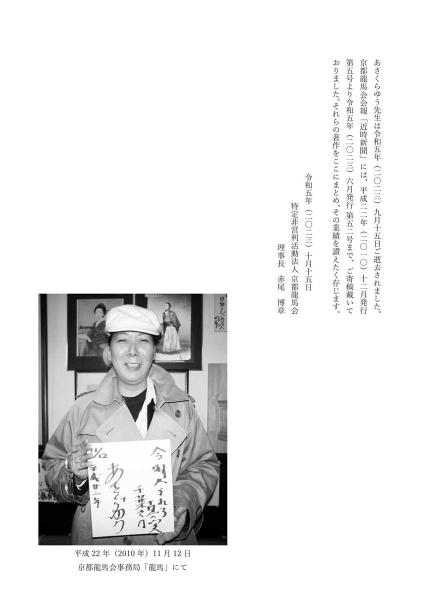 あさくらゆう先生は令和五年（二〇二三）九月十五日ご逝去されました。
京都龍馬会会報「近時新聞」には、平成二二年（二〇一〇）十二月発行
第五号より令和五年（二〇二三）六月発行 第五二号まで、ご寄稿戴いて
おりました。それらの著作をここにまとめ、その業績を讃えたく存じます。
令和五年（二〇二三）十月十五日
特定非営利活動法人 京都龍馬会
理事長　赤尾　博章
今明かされる
真実
千葉さな
あさくらゆう
平成廿二年
11/12
平成 22 年（2010 年）11 月 12 日
京都龍馬会事務局「龍馬」にて